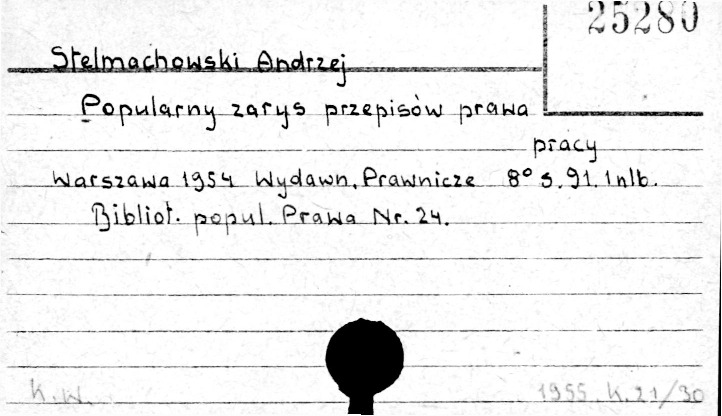 25280
Stelmachowski Andrzej
Popularny zarys przepisów prawa
pracy
Warszawa 1954 Wydawn. Prawnicze 8° s. 91. 1 nlb.
Bibliot. popul. Prawa Nr. 24.
K.W. 1955. K. 21/30